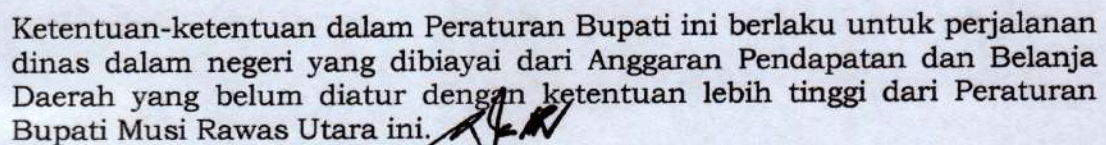 Ketentuan-ketentuan dalam Peraturan Bupati ini berlaku untuk perjalanan
dinas dalam negeri yang dibiayai dari Anggaran Pendapatan dan Belanja
Daerah yang belum diatur dengan ketentuan lebih tinggi dari Peraturan
Bupati Musi Rawas Utara ini.